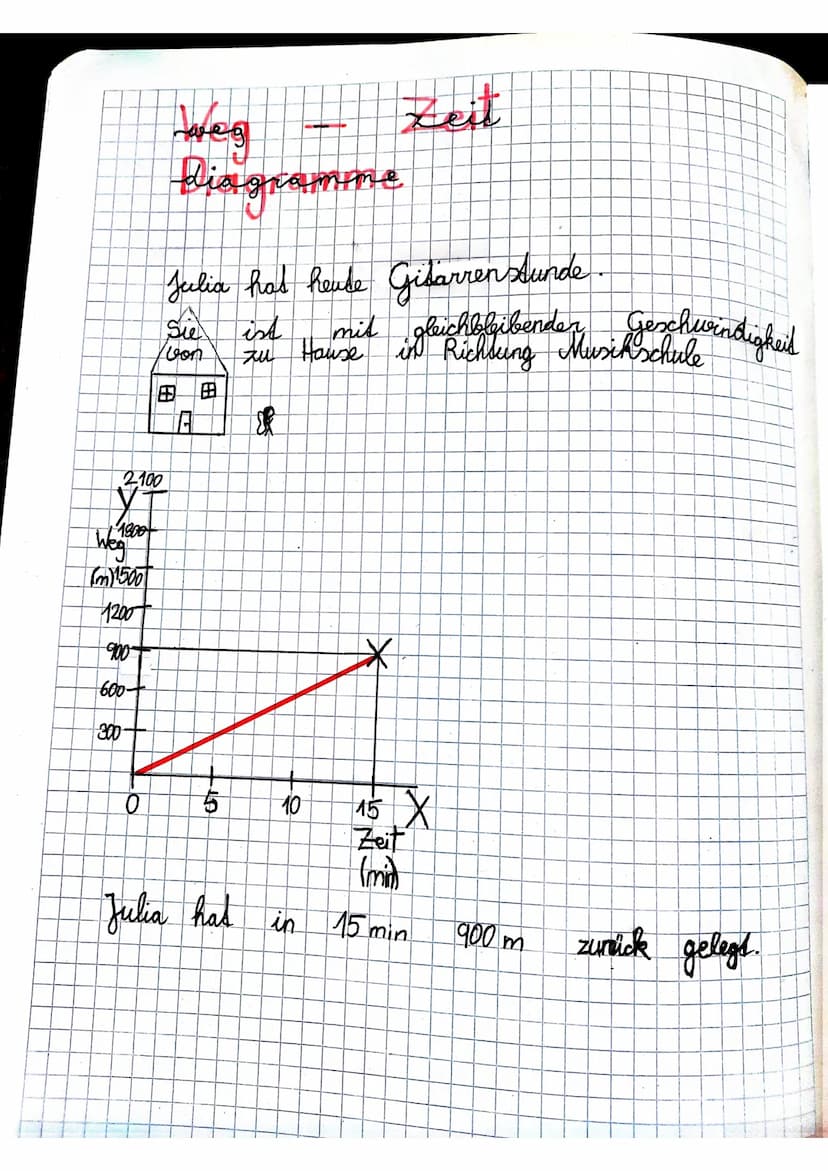 Weg - Zeit
Diagramme
Julia hat heute Gitarrenstunde.
Sie ist mit gleichbleibender Geschwindigkeit
von zu Hause in Richtung Musikschule
2100
y
1800
Weg
(m) 1500
1200
900
600
300
0 5 10 15 X
Zeit
(min)
Julia hat in 15 min 900 m zurück gelegt.